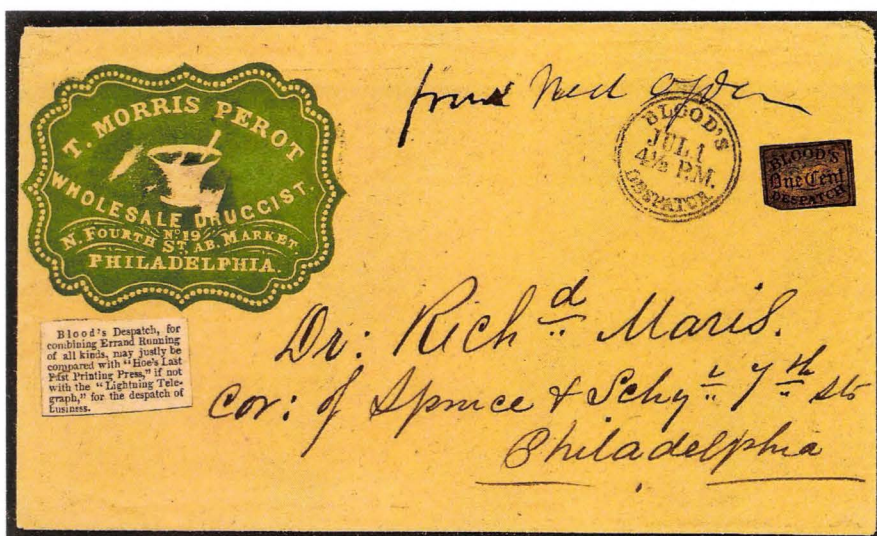 T. MORRIS PEROT
WHOLESALE DRUGGIST.
No. 19
N. FOURTH ST. AB. MARKET.
PHILADELPHIA.
BLOOD'S
JUL 1
4½ P.M.
DESPATCH
BLOOD'S
One Cent
DESPATCH
Blood's Despatch, for
combining Errand Running
of all kinds, may justly be
compared with "Hoe's Last
Fast Printing Press," if not
with the "Lightning Tele-
graph," for the despatch of
business.
Dr: Richd Maris.
Cor: of Spruce & Schyl 7th Sts
Philadelphia